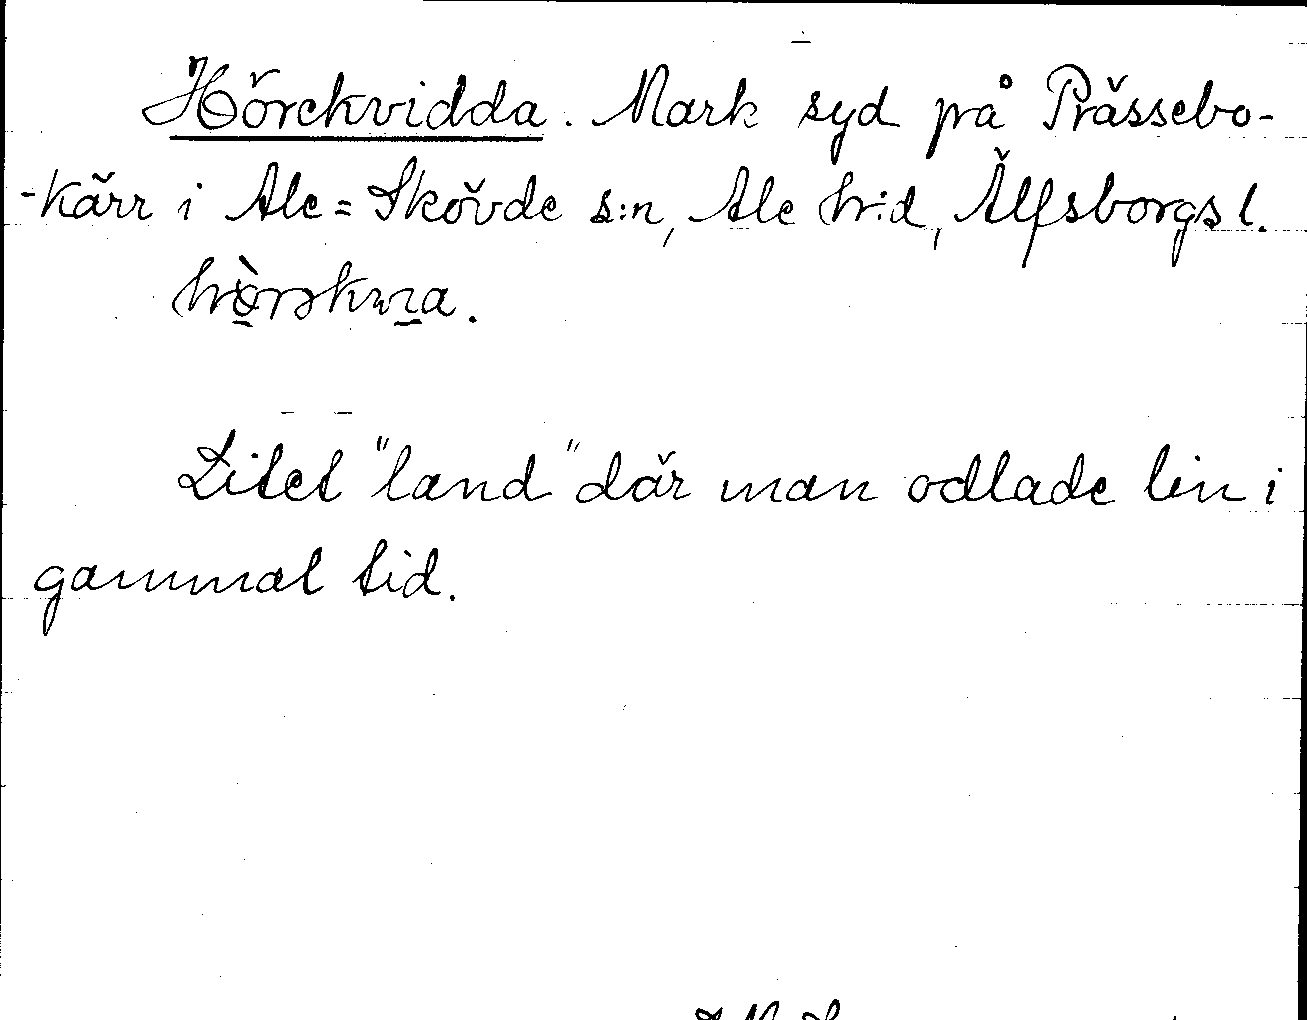 Hörekvidda. Mark syd på Prässebo-
-Kärr i Ale=Skövde s:n, Ale hr:d, Älfsborgs l.
Litet "land" där man odlade lin i
gammal tid.